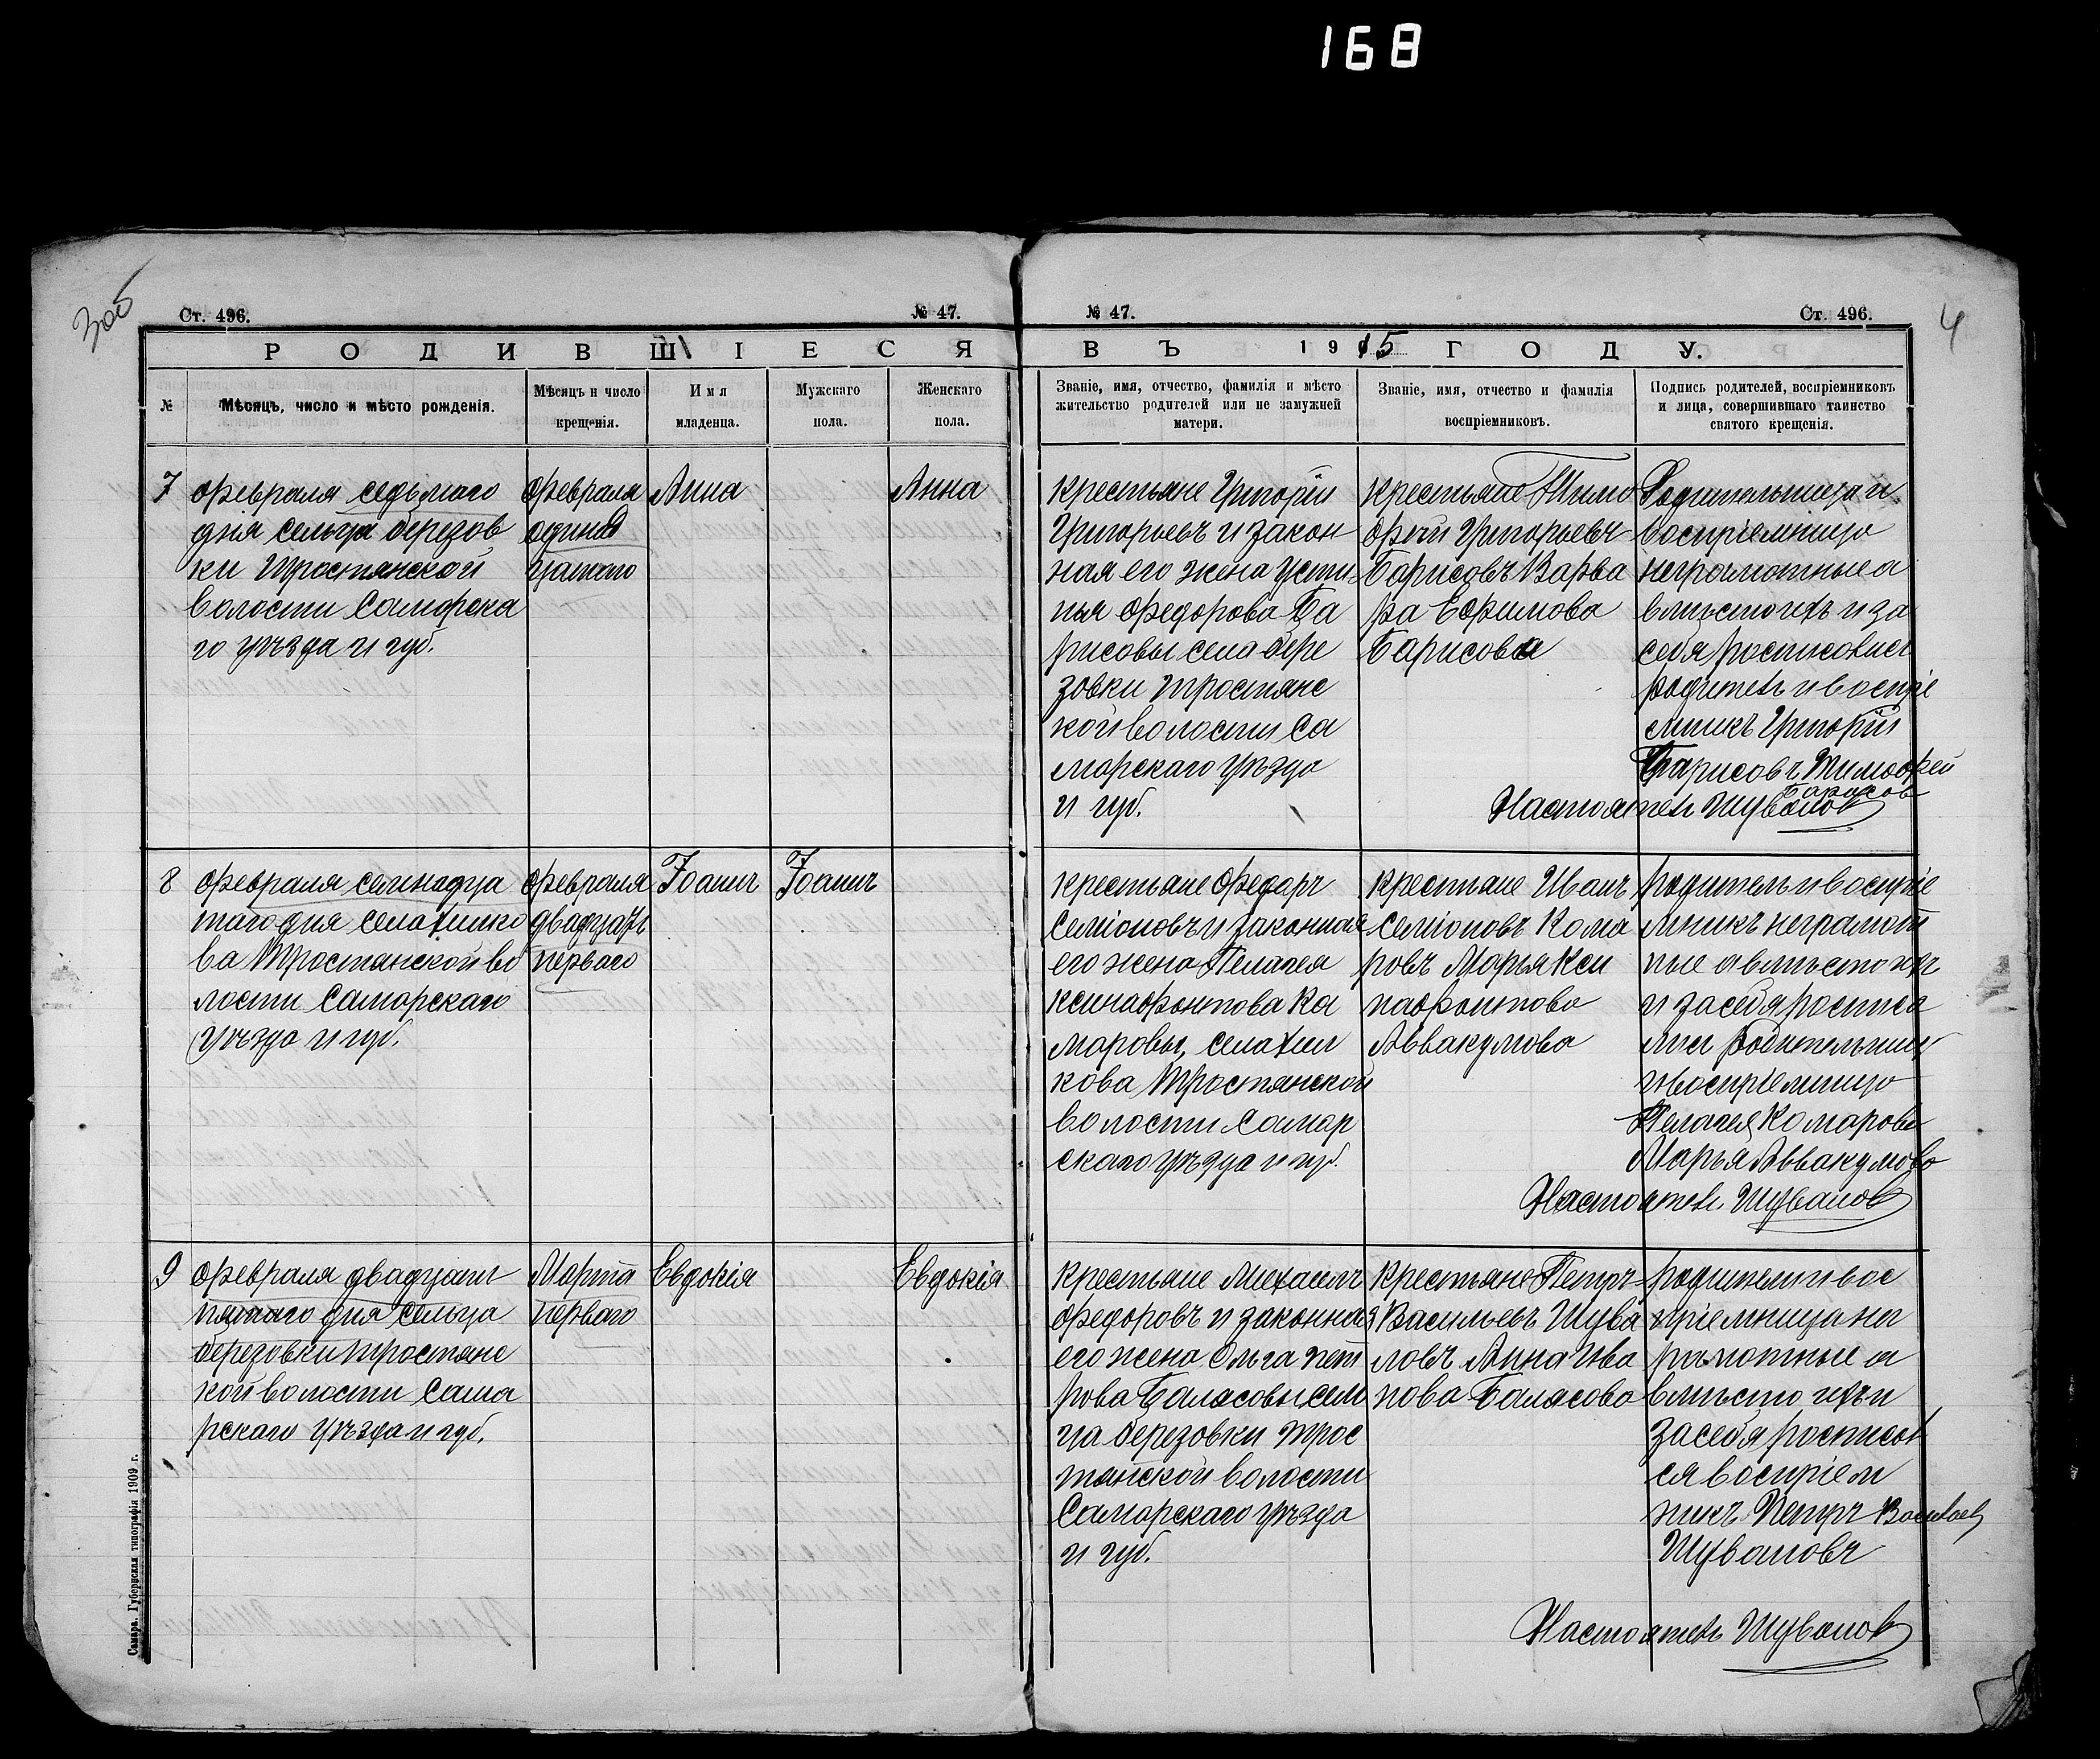 168
3об
4
Ст. 496.
№ 47.
№ 47.
Ст. 496.
РОДИВШІЕСЯ
ВЪ 1915 ГОДУ.
№
Мѣсяцъ, число и мѣсто рожденія.
Мѣсяцъ и число
крещенія.
Имя
младенца.
Мужскаго
пола.
Женскаго
пола.
Званіе, имя, отчество, фамилія и мѣсто
жительство родителей или не замужней
матери.
Званіе, имя, отчество и фамилія
воспріемниковъ.
Подпись родителей, воспріемниковъ
и лица, совершившаго таинство
святого крещенія.
7
февраля седьмаго
дня сельца березов
ки Тростянской
волости Самарска
го уѣзда и губ.
февраля
одинад
цатаго
Анна
Анна
крестьяне Григорій
Григорьевъ и закон
ная его жена Усти
нья федорова Ба
рисовы села бере
зовки тростянс
кой волости Са
марскаго уѣзда
и губ.
крестьяне Тимо
фей Григорьевъ
Барисовъ Варва
ра Ефимова
Барисова
Родительница и
воспріемница
неграмотные а
вместо ихъ и за
себя росписовися
родитель и воспріе
мникъ Григорій
Барисовъ Тимофей
Барисов
Настоятель Шувалов
8
февраля семнадца
таго дня села хилко
ва Тростянской во
лости Самарскаго
уѣзда и губ.
февраля
двадцать
перваго
Іоаннъ
Іоаннъ
крестьяне Федоръ
Семіоновъ и законная
его жена Пелагея
ксинафонтова Ка
маровы, села хил
кова Тростянской
волости Самар
скаго уѣзда и губ.
крестьяне Иванъ
Семіоновъ Кома
ровъ Марья Кси
нафонтова
Аввакумова
родитель и воспріе
мникъ неграмот
ные а вместо ихъ
и за себя росписа
лись родительниц
и воспріемница
Пелагея Комарова
Марья Аввакумова
Настоятель Шувалов
9
февраля двадцать
пятаго дня сельца
березовки тростянс
кой волости Сама
рскаго уѣзда и губ.
Марта
перваго
Евдокія
Евдокія
крестьяне Михаилъ
федоровъ и законная
его жена Ольга пет
рова Баласовы сель
ца березовки трос
тянской волости
Самарскаго уѣзда
и губ.
крестьяне Петръ
Васильевъ Шува
ловъ Анна Ива
нова Баласова
родители и вос
пріемница не
грамотные а
вместо ихъ и
за себя росписов
ся воспріем
никъ Петръ Васильев
Шуваловъ
Настоятель Шувалов
Самара. Губернская типографія 1909 г.